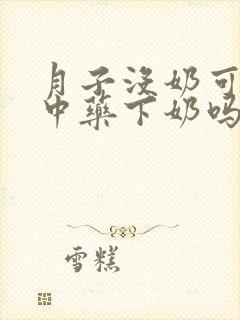 月子没奶可
中药下奶吗
雪糕